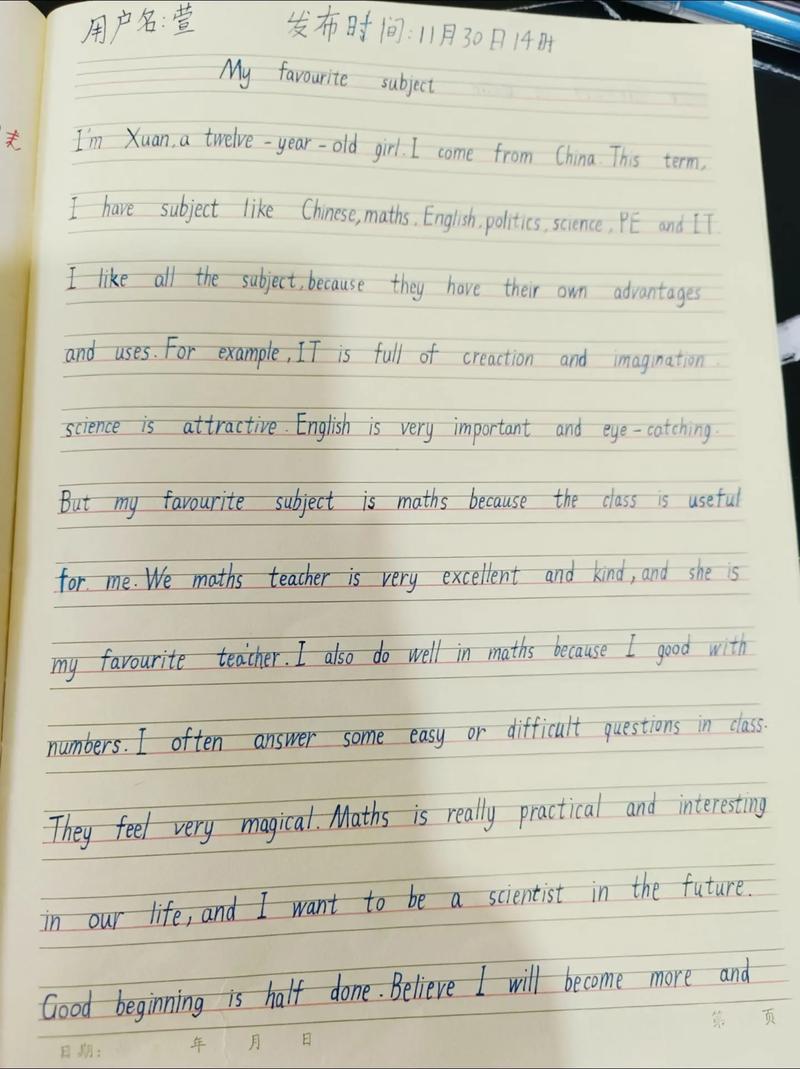 用户名:萱 发布时间:11月30日14时
My favourite subject
I'm Xuan,a twelve-year-old girl.I come from China.This term,
I have subject like Chinese,maths,English,politics,science,PE and IT.
I like all the subject,because they have their own advantages
and uses.For example,IT is full of creaction and imagination.
science is attractive.English is very important and eye-catching.
But my favourite subject is maths because the class is useful
for me.We maths teacher is very excellent and kind,and she is
my favourite teacher.I also do well in maths because I good with
numbers.I often answer some easy or difficult questions in class.
They feel very magical.Maths is really practical and interesting
in our life,and I want to be a scientist in the future.
Good beginning is half done.Believe I will become more and
日期: 年 月 日
第 页